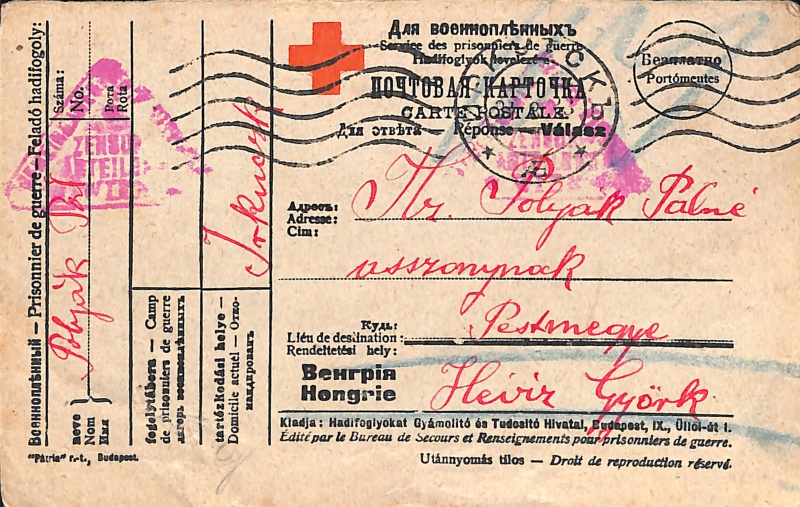 Для военноплѣнныхъ
Service des prisonniers de guerre
Hadifoglyok levelezése
ПОЧТОВАЯ КАРТОЧКА
CARTE POSTALE
Для отвѣта — Réponse — Válasz
Безплатно
Portómentes
Адресъ:
Adresse:
Cim:
Nr. Polyák Pálné
asszonynak
Куда:
Liéu de destination:
Rendeltetési hely:
Pestmegye
Венгрія
Hongrie
Hévíz Györk
Kiadja: Hadifoglyokat Gyámolitó és Tudositó Hivatal, Budapest, IX., Üllői-út 1.
Édité par le Bureau de Secours et Renseignements pour prisonniers de guerre.
Utánnyomás tilos — Droit de reproduction réservé.
Военноплѣнный — Prisonnier de guerre — Feladó hadifogoly:
Száma:
No.
Рота
Rota
neve
Nom
Имя
Polyák Pál
fogolytábora — Camp
de prisonniers de guerre
лагерь военноплѣнныхъ
tartózkodási helye —
Domicile actuel — Отко-
мандированъ
Irkuczk
"Pátria" r.-t., Budapest.
ZENSUR
ABTEILUNG